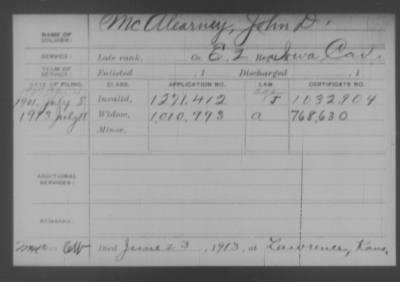 McAlearney, John D.
NAME OF SOLDIER:
SERVICE: Late rank, Co. E. 2 Reg't Iowa Cav.
TERM OF SERVICE: Enlisted , 1 Discharged , 1
DATE OF FILING. CLASS. APPLICATION NO. LAW. CERTIFICATE NO.
1901. July 8. Invalid, 1271.412 J 1032.904
1913 July 11 Widow, 1,010,793 a 768,630
Minor,
ADDITIONAL SERVICES:
REMARKS:
CW Died June 23, 1913, at Lawrence, Kans.